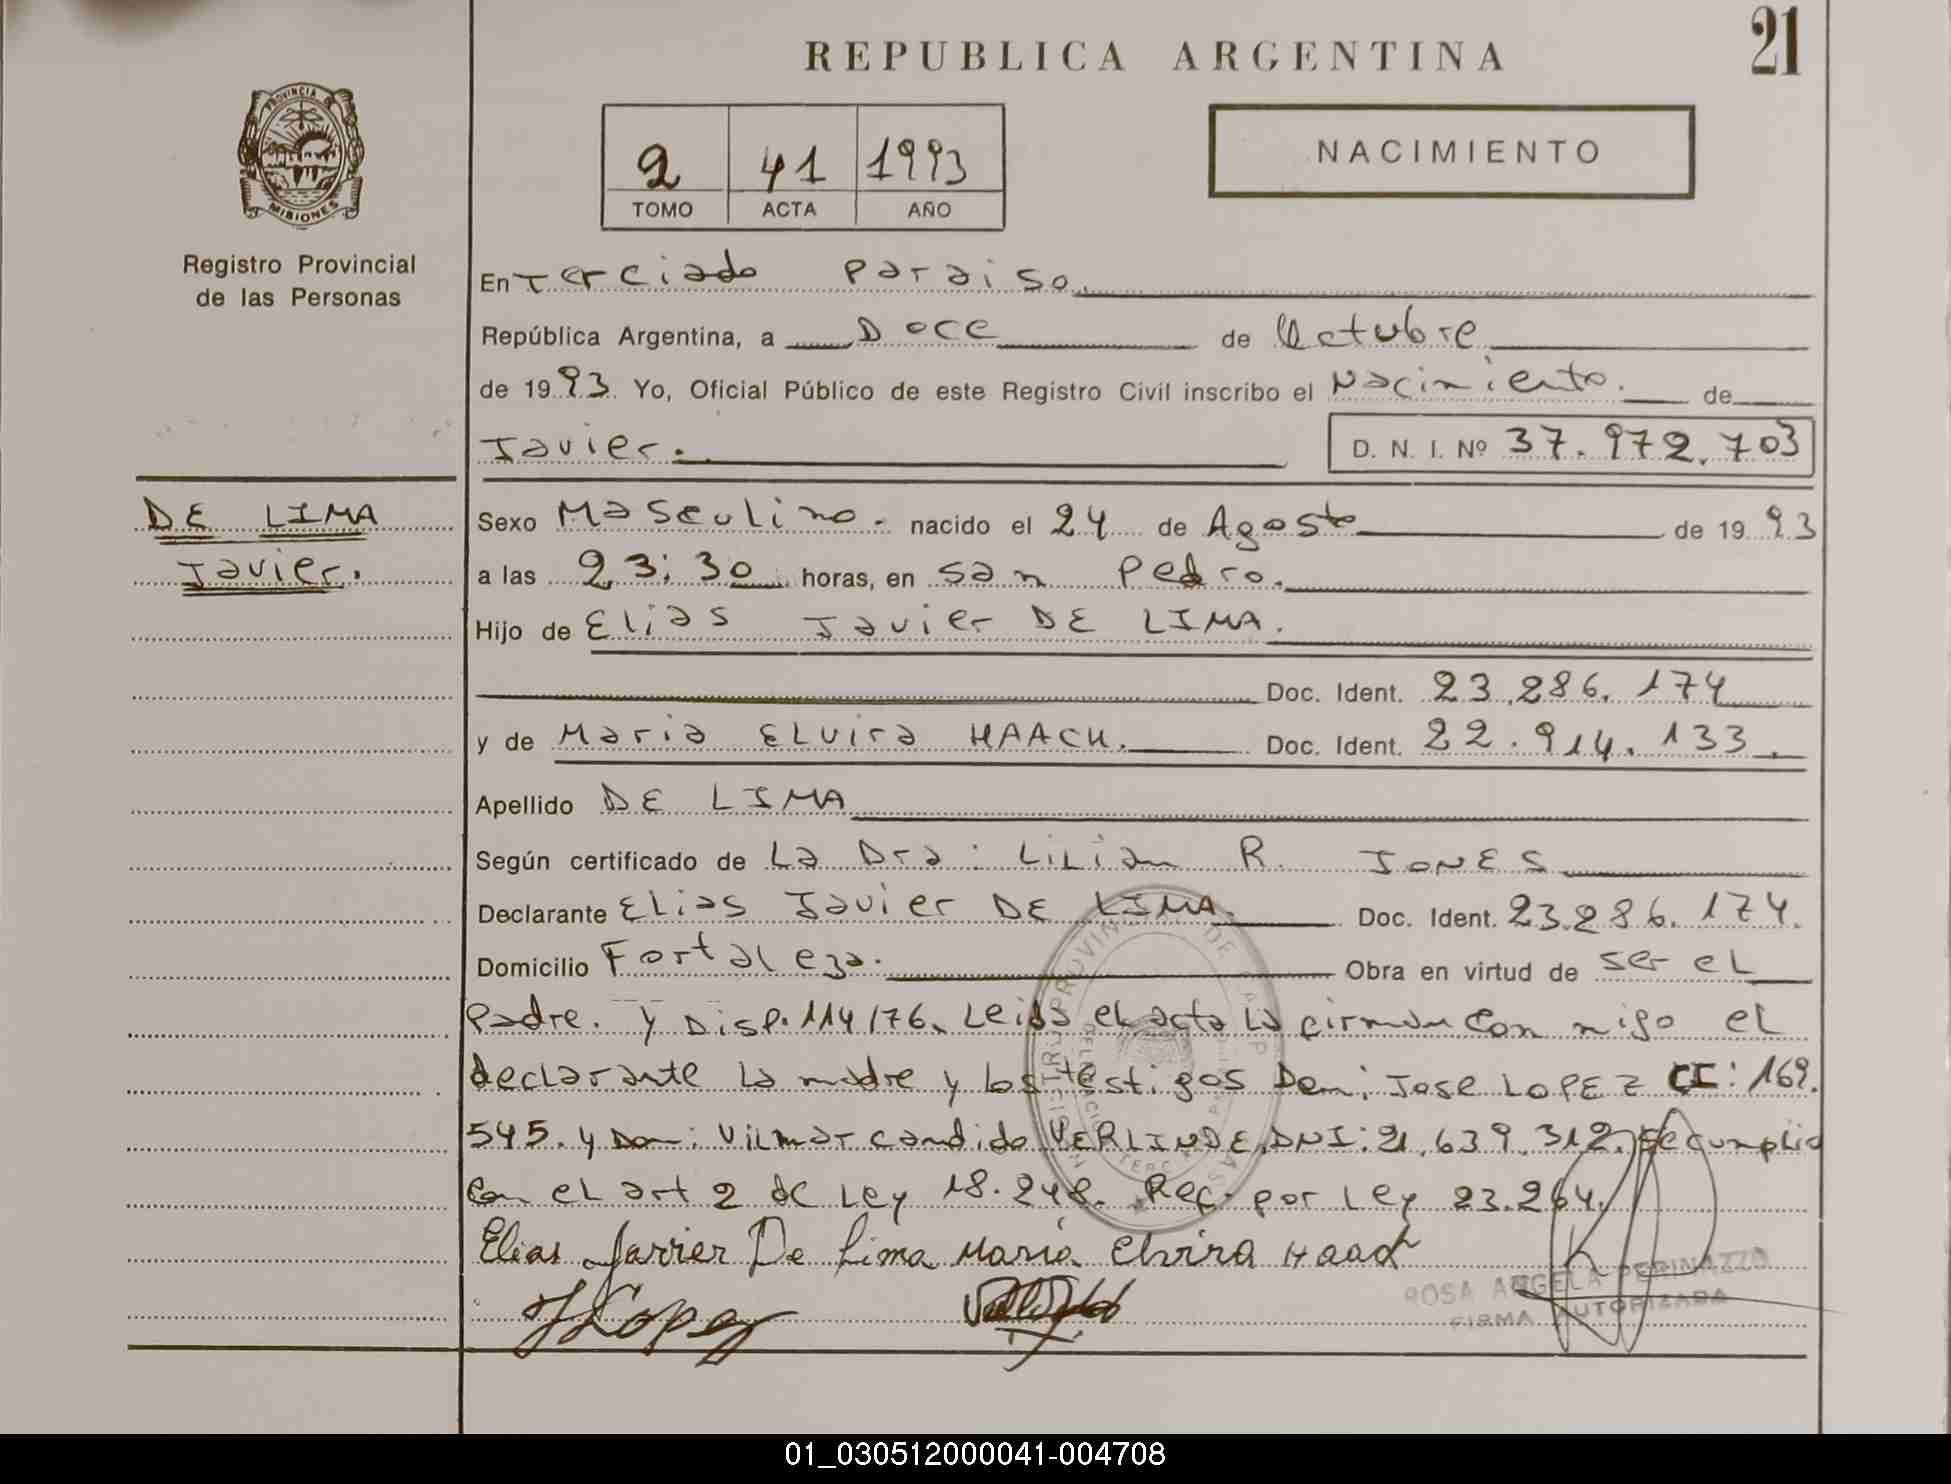 REPUBLICA ARGENTINA
21
PROVINCIA DE
MISIONES
Registro Provincial
de las Personas
2 41 1993
TOMO ACTA AÑO
NACIMIENTO
En Terciado Paraiso.
República Argentina, a Doce de Octubre
de 1993 Yo, Oficial Público de este Registro Civil inscribo el Nacimiento. de
Javier. D. N. I. Nº 37.972.703
DE LIMA
Javier.
Sexo Masculino. nacido el 24 de Agosto de 1993
a las 23:30 horas, en San Pedro.
Hijo de Elias Javier DE LIMA.
Doc. Ident. 23.286.174
y de Maria Elvira HAACH. Doc. Ident. 22.914.133.
Apellido DE LIMA
Según certificado de La Dra: Lilian R. JONES
Declarante Elias Javier DE LIMA. Doc. Ident. 23.286.174.
Domicilio Fortaleza. Obra en virtud de ser el
Padre. y Disp. 114/76. Leida el acta la firman con migo el
declarante la madre y los testigos Don: Jose LOPEZ CI: 169.
545. y Don: Vilmar candido VERLINDE, DNI: 21.639.312. Se cumplio
con el art 2 de Ley 18.248. Rec. por Ley 23.264.
Elias Javier De Lima Maria Elvira Haach
J Lopez
ROSA ANGELA PERINAZZO
FIRMA AUTORIZADA
01_030512000041-004708